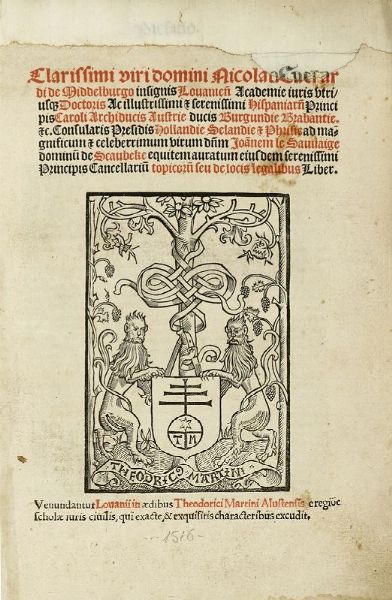 Clarissimi viri domini Nicolao Euerar
di de Middelburgo insignis Louaueñ Academie iuris vtri
usq; Doctoris Ac illustrissimi & serenissimi Hispaniarũ Princi
pis Caroli Archiducis Austrie ducis Burgundie Brabantie.
&c. Consularis Presidis Hollandie Selandie & Phrisie ad ma
gnificum & celeberrimum virum dñm Joãnem le Sauuaige
dominũ de Scaubeke equitem auratum eiusdem serenissimi
Principis Cancellariũ topicorũ seu de locis legalibus Liber.
T M
THEODRICO MARTINI
Venundantur Lovanii in ædibus Theodorici Martini Alustensis e regiõe
scholæ iuris civilis, qui exacte, & exquisitis characteribus excudit.
-1516-